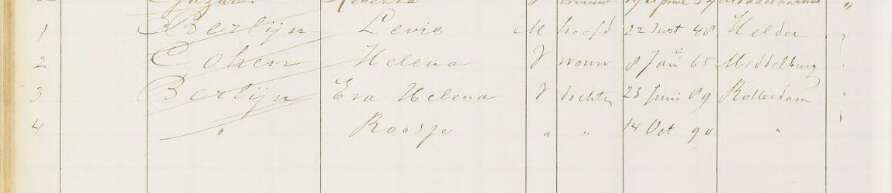 1 Berlijn Levie M hoofd 22 Mrt 48 Helder "
2 Cohen Helena V vrouw 8 Jan 65 Middelburg "
3 Berlijn Eva Helena V dochter 23 Juni 89 Rotterdam "
4 " Roosje " " 14 Oct 90 " "